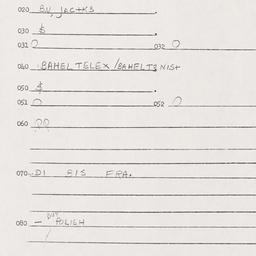 020 BU, JACKKS
030 $
031 0 032 0
040 BAHEL TELEX / BAHELTS NIST
050 $
051 0 052 0
060 PP
070 DI BIS FRA.
080 - POLISH